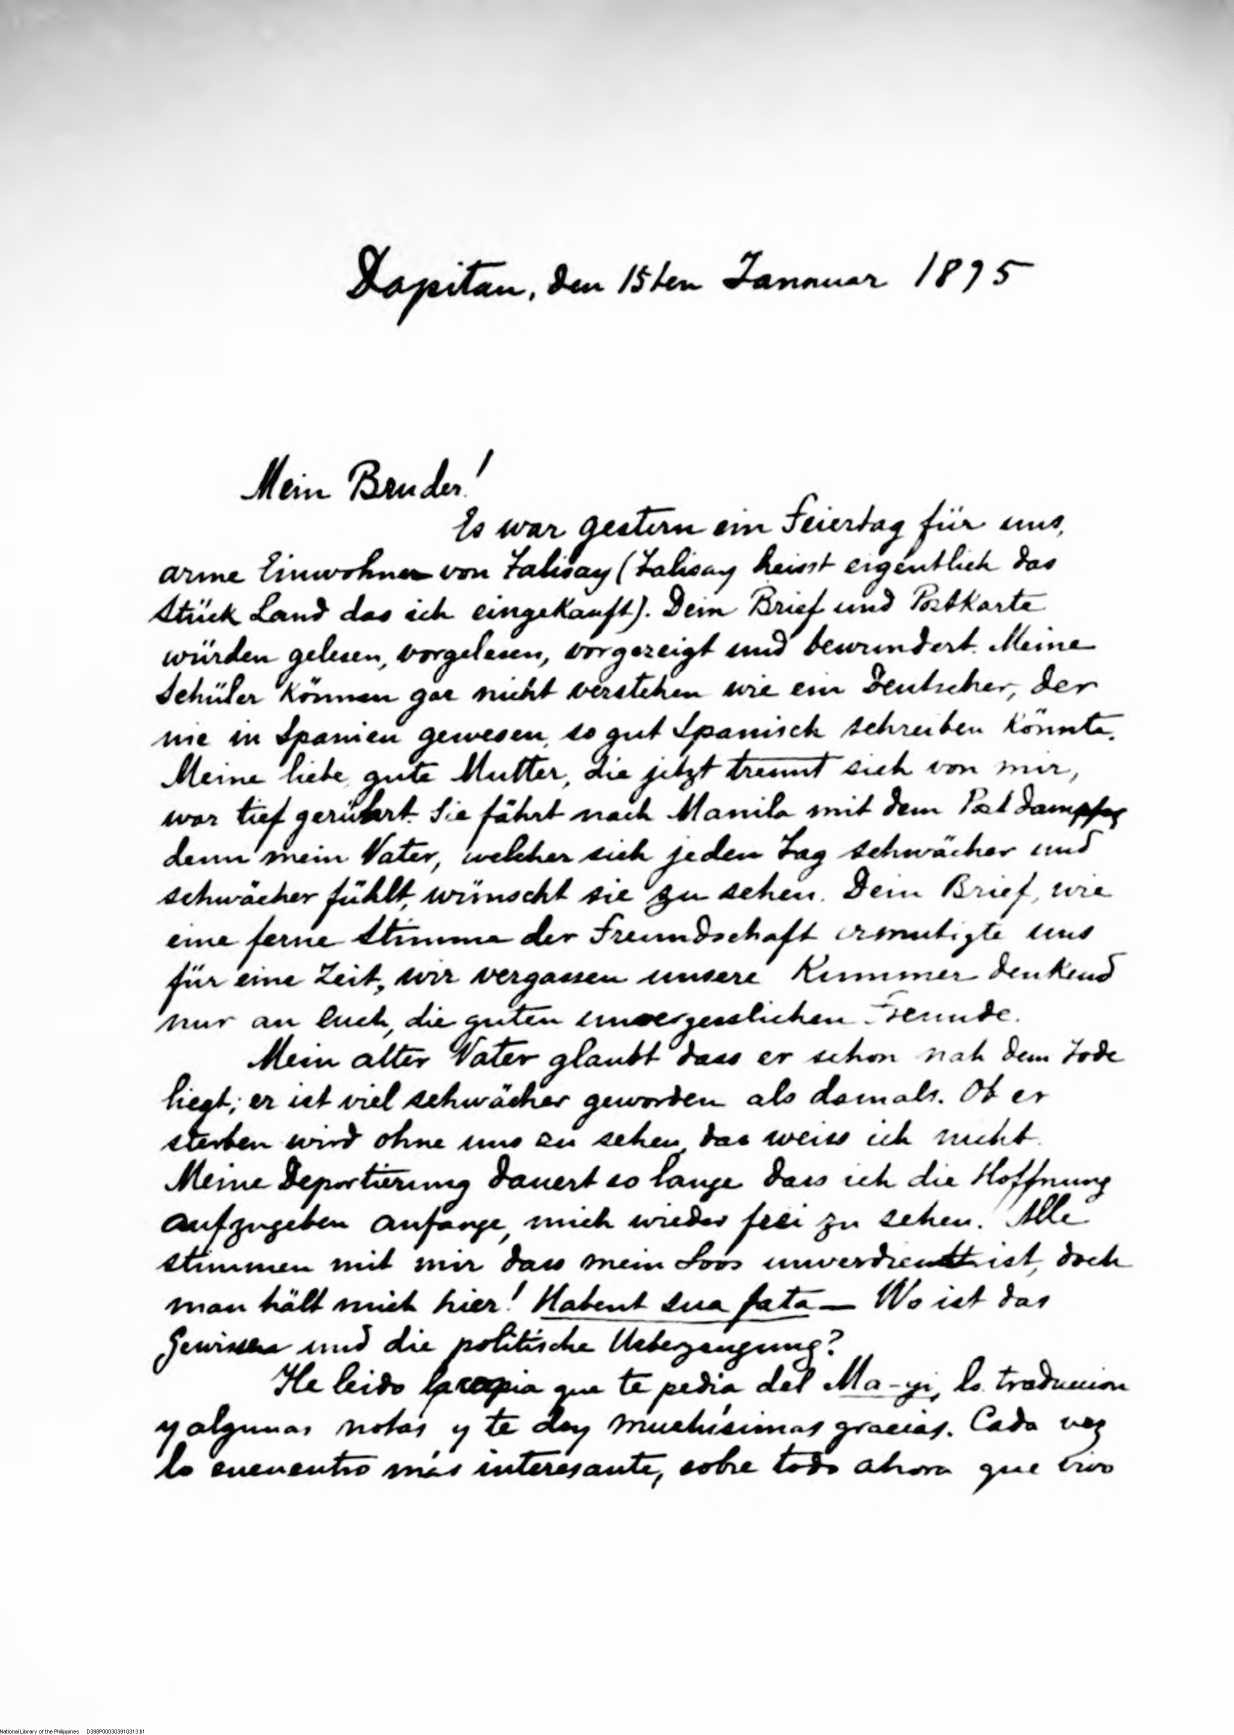 Dapitan, den 15ten Januuar 1895
Mein Bruder!
Es war gestern ein Feiertag für uns,
arme Einwohner von Talisay (Talisay heisst eigentlich das
Stück Land das ich eingekauft). Dein Brief und Postkarte
würden gelesen, vorgelesen, vorgezeigt und bewundert. Meine
Schüler können gar nicht verstehen wie ein Deutscher, der
nie in Spanien gewesen, so gut Spanisch schreiben könnte.
Meine liebe gute Mutter, die jetzt trennt sich von mir,
war tief gerührt. Sie fährt nach Manila mit dem Postdampfer
denn mein Vater, welcher sich jeden Tag schwächer und
schwächer fühlt, wünscht sie zu sehen. Dein Brief, wie
eine ferne Stimme der Freundschaft ermutigte uns
für eine Zeit, wir vergassen unsere Kummer denkend
nur an euch, die guten unvergesslichen Freunde.
Mein alter Vater glaubt dass er schon nah dem Tode
liegt; er ist viel schwächer geworden als damals. Ob er
sterben wird ohne uns zu sehen, das weiss ich nicht.
Meine Deportierung dauert so lange dass ich die Hoffnung
aufzugeben anfange, mich wieder frei zu sehen. Alle
stimmen mit mir dass mein Loos unverdient ist, doch
man hält mich hier! Habent sua fata — Wo ist das
Gewissen und die politische Ueberzeugung?
He leido la copia que te pedia del Ma-yi, la traduccion
y algunas notas y te doy muchísimas gracias. Cada vez
lo encuentro más interesante, sobre todo ahora que vivo
National Library of the Philippines